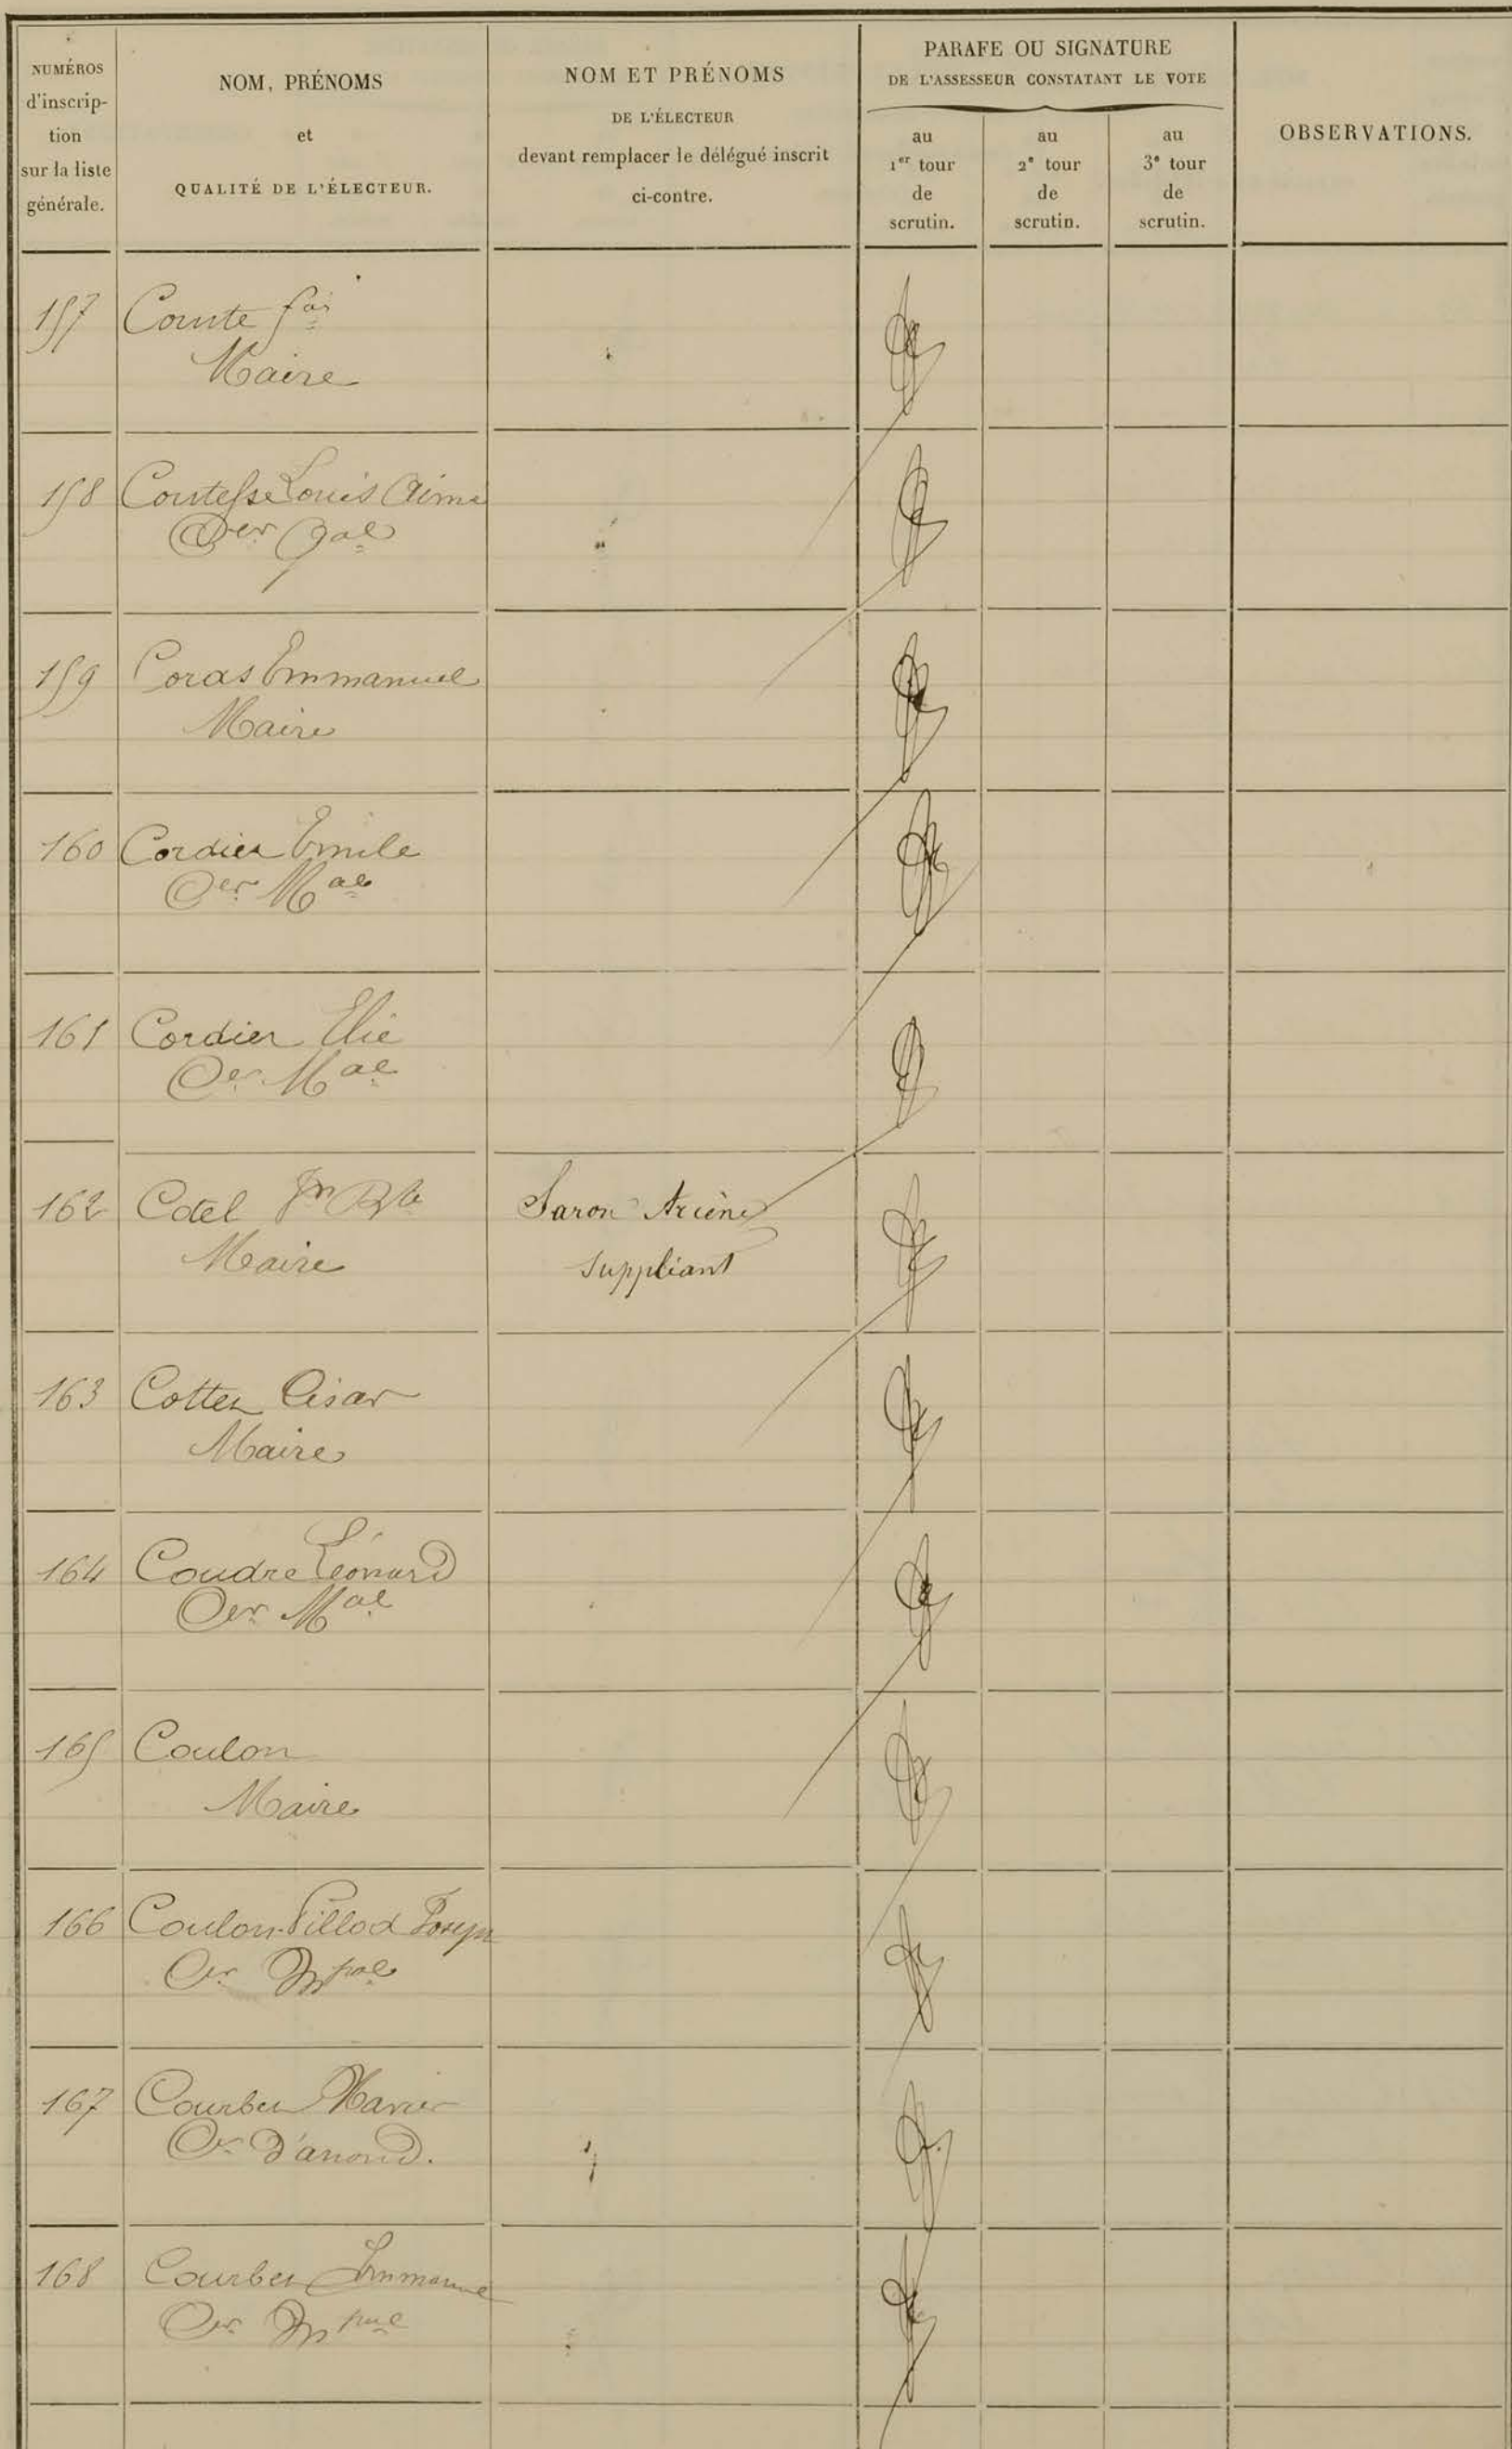 NUMÉROS
d'inscrip-
tion
sur la liste
générale.
NOM, PRÉNOMS
et
QUALITÉ DE L'ÉLECTEUR.
NOM ET PRÉNOMS
DE L'ÉLECTEUR
devant remplacer le délégué inscrit
ci-contre.
PARAFE OU SIGNATURE
DE L'ASSESSEUR CONSTATANT LE VOTE
au
1er tour
de
scrutin.
au
2e tour
de
scrutin.
au
3e tour
de
scrutin.
OBSERVATIONS.
157 Comte fois
Maire
158 Contesse Louis Aimé
Cer Gal
159 Coras Emmanuel
Maire
160 Cordier Emile
Cer Mal
161 Cordier Elie
Cer Mal
162 Cotel Jn Bte Saron Arcène
Maire suppléant
163 Cottez César
Maire
164 Coudre Léonard
Cer Mal
165 Coulon
Maire
166 Coulon-Pillod Joseph
Cer Mpal
167 Courbet Xavier
Cer d'arrond.
168 Courbet Emmanuel
Cer Mpal